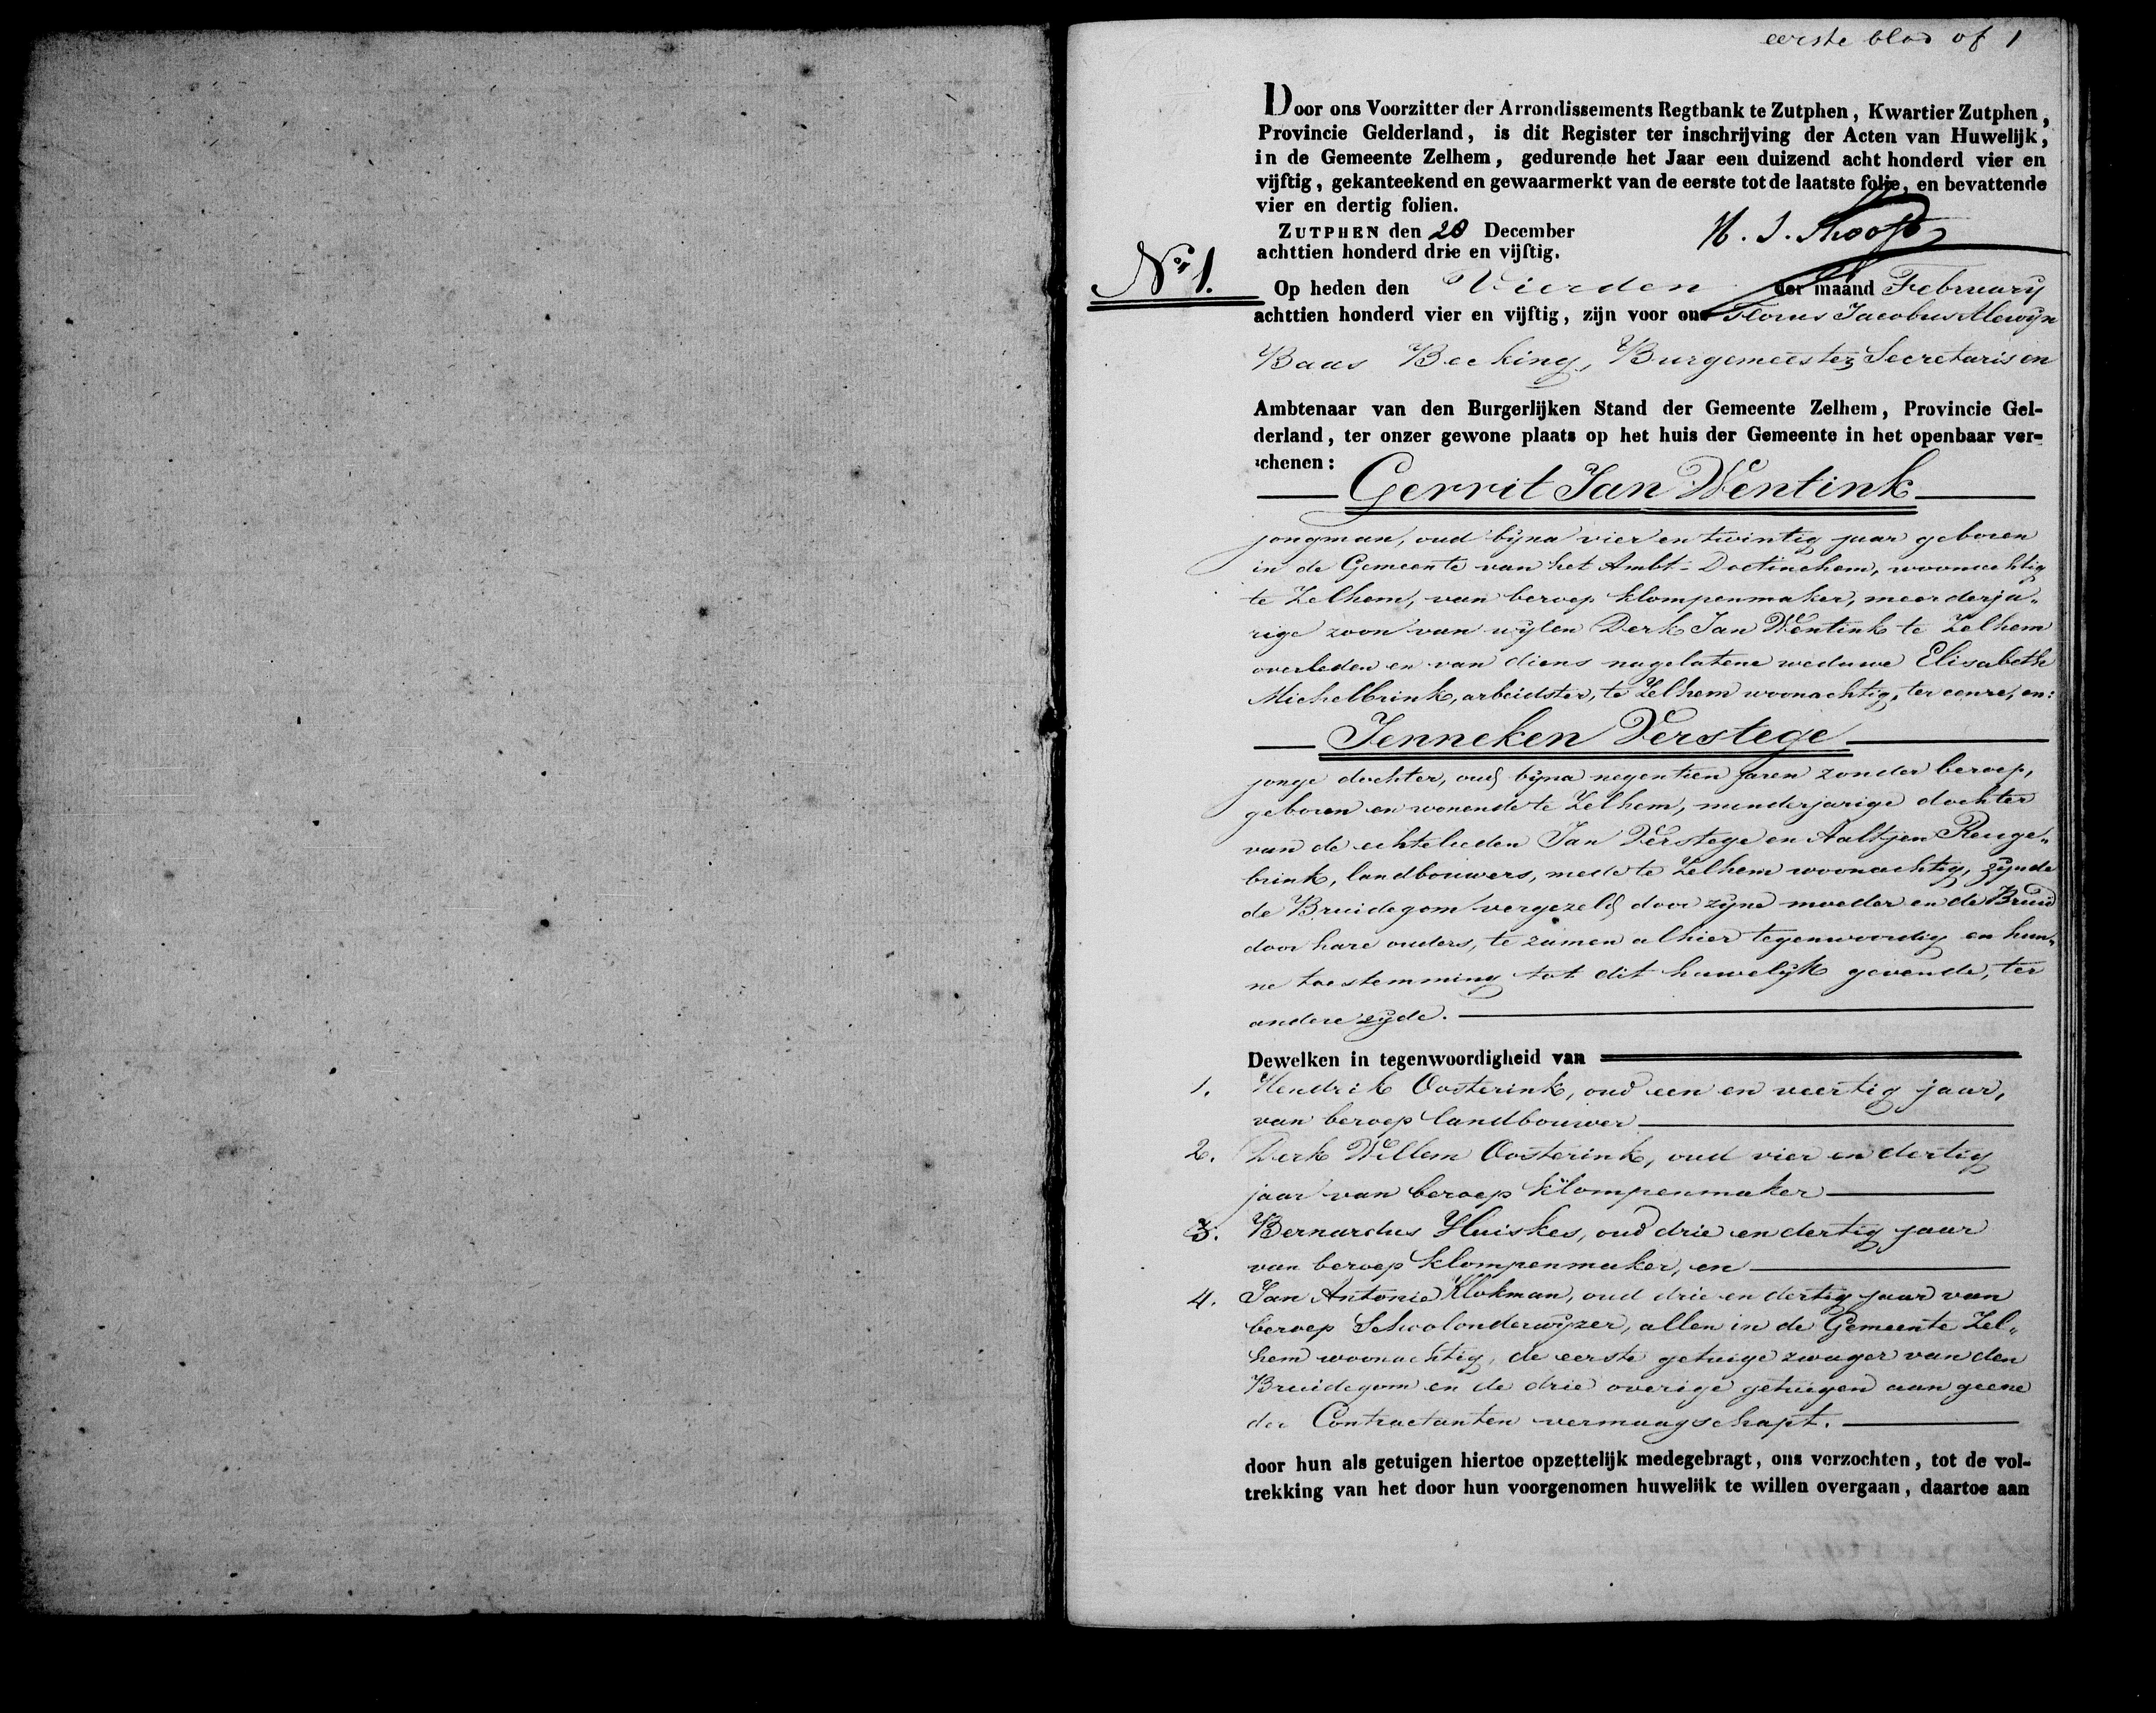 eerste blad of 1
Door ons Voorzitter der Arrondissements Regtbank te Zutphen, Kwartier Zutphen,
Provincie Gelderland, is dit Register ter inschrijving der Acten van Huwelijk,
in de Gemeente Zelhem, gedurende het Jaar een duizend acht honderd vier en
vijftig, gekanteekend en gewaarmerkt van de eerste tot de laatste folie, en bevattende
vier en dertig folien.
ZUTPHEN den 20 December
achttien honderd drie en vijftig.
No. 1.
Op heden den Vierden der maand February
achttien honderd vier en vijftig, zijn voor ons Florus Jacobus Alewijn
Baas Becking, Burgemeester, Secretaris en
Ambtenaar van den Burgerlijken Stand der Gemeente Zelhem, Provincie Gel-
derland, ter onzer gewone plaats op het huis der Gemeente in het openbaar ver-
schenen:
Gerrit Jan Wentink
jongman, oud bijna vier en twintig jaar geboren
in de Gemeente van het Ambt-Doetinchem, woonachtig
te Zelhem, van beroep klompenmaker, meerderja„
rige zoon van wijlen Derk Jan Wentink te Zelhem
overleden en van diens nagelatene weduwe Elisabeth
Michelbrink, arbeidster, te Zelhem woonachtig, ter eenre, en:
Jenneken Verstege
jonge dochter, oud bijna negentien jaren zonder beroep,
geboren en wonende te Zelhem, minderjarige dochter
van de echtelieden Jan Verstege en Aaltjen Reuge„
brink, landbouwers, mede te Zelhem woonachtig, zijnde
de Bruidegom vergezeld door zijne moeder en de Bruid
door hare ouders, te zamen alhier tegenwoordig en hun„
ne toestemming tot dit huwelijk gevende, ter
andere zijde.
Dewelken in tegenwoordigheid van
1. Hendrik Oosterink, oud een en veertig jaar,
van beroep landbouwer
2. Derk Willem Oosterink, oud vier en dertig
jaar van beroep klompenmaker
3. Bernardus Huiskes, oud drie en dertig jaar
van beroep klompenmaker, en
4. Jan Antonie Klokman, oud drie en dertig jaar van
beroep Schoolonderwijzer, allen in de Gemeente Zel„
hem woonachtig, de eerste getuige zwager van den
Bruidegom en de drie overige getuigen aan geene
der Contractanten vermaagschapt.
door hun als getuigen hiertoe opzettelijk medegebragt, ons verzochten, tot de vol-
trekking van het door hun voorgenomen huwelijk te willen overgaan, daartoe aan